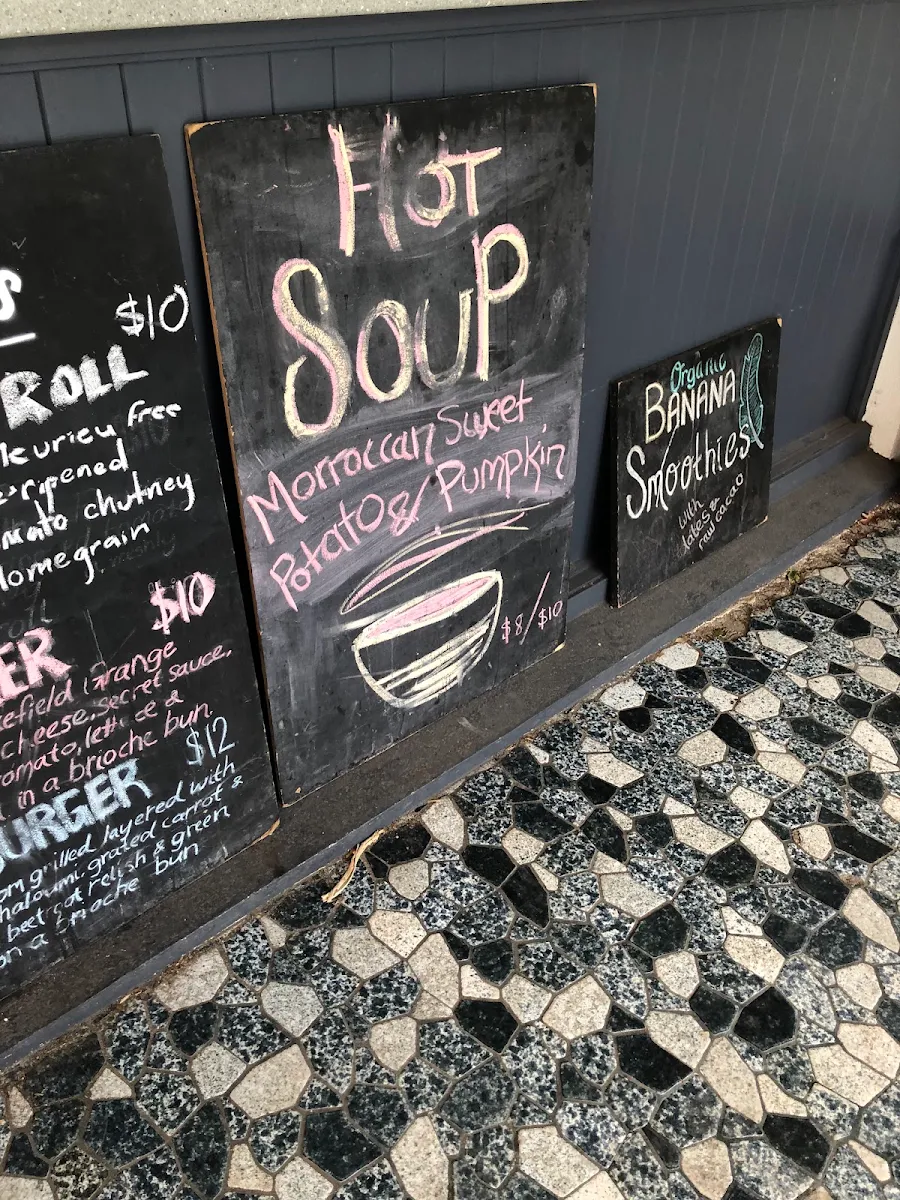 S
$10
ROLL
leurieu free
ripened
mato chutney
Homegrain
$10
ER
efield orange
cheese, secret sauce,
omato, lettuce &
in a brioche bun.
$12
BURGER
om grilled layered with
haloumi, grated carrot &
beetroot relish & green
on a brioche bun
HOT
SOUP
Morroccan Sweet
Potato & Pumpkin
$8/$10
Organic
BANANA
Smoothies
with
dates &
raw cacao